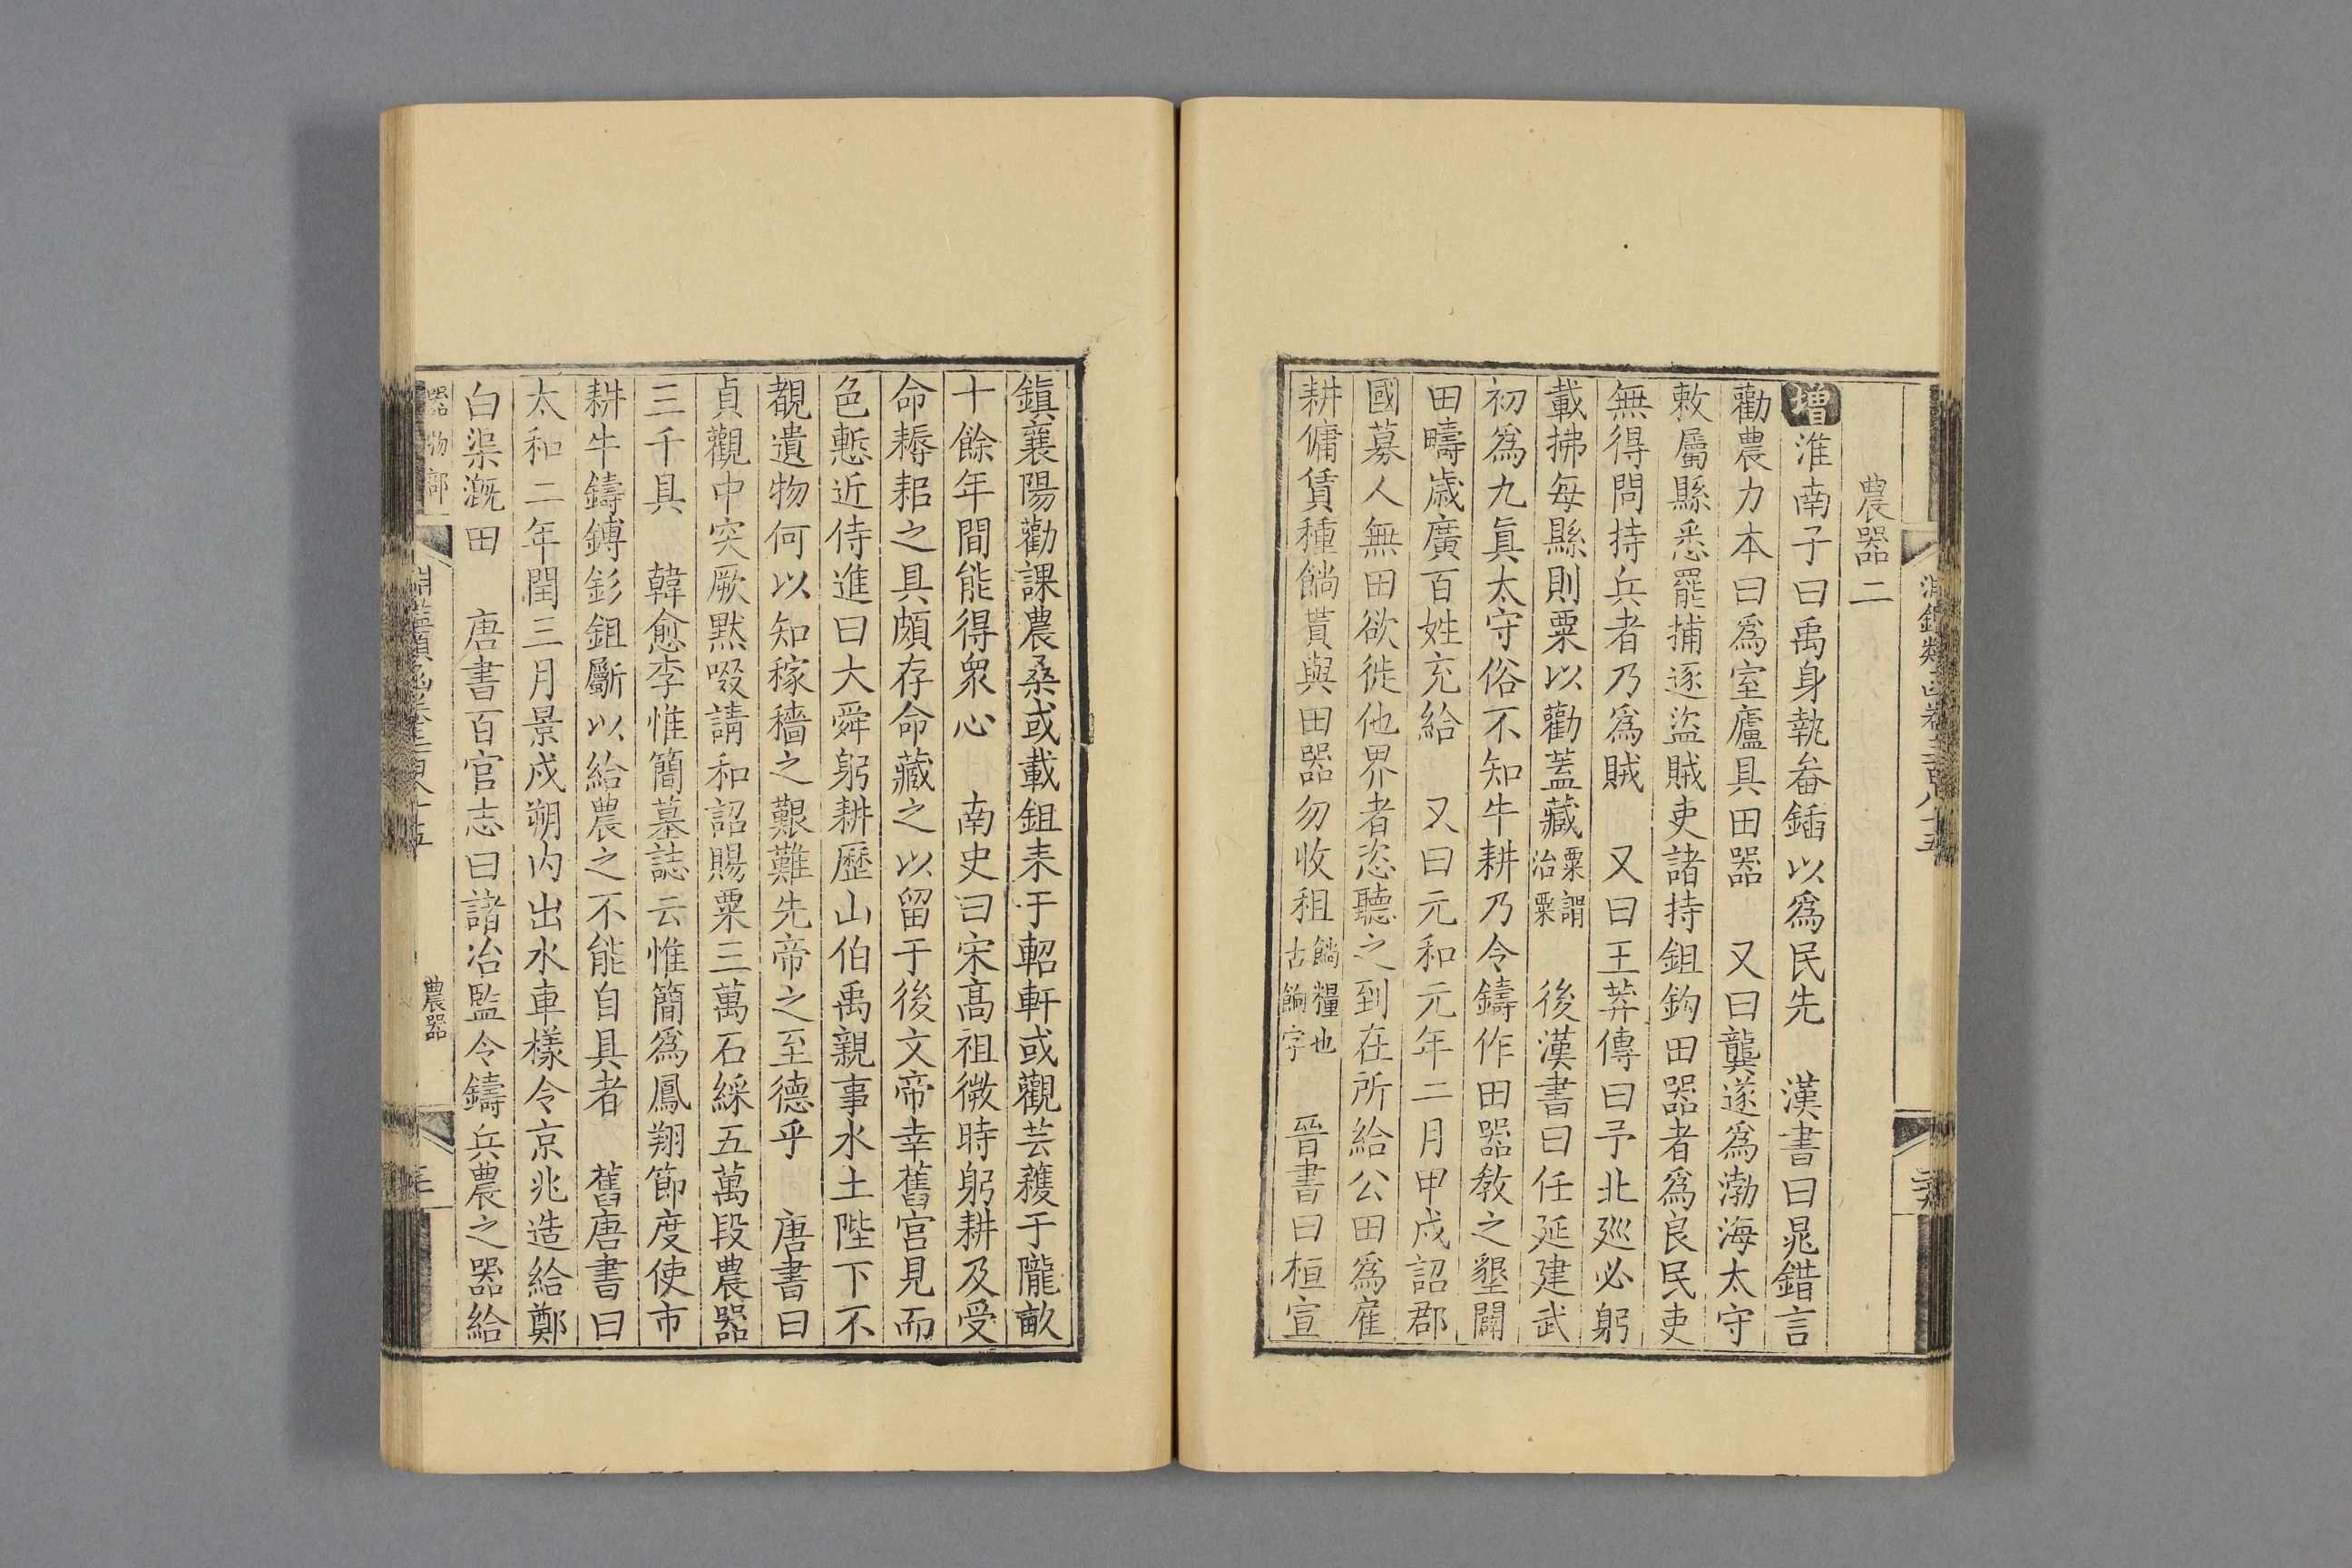 農器二
增淮南子曰禹身執畚鍤以爲民先　漢書曰晁錯言
勸農力本曰爲室廬具田器　又曰龔遂爲渤海太守
敕屬縣悉罷捕逐盜賊吏諸持鉏鈎田器者爲良民吏
無得問持兵者乃爲賊　又曰王莽傳曰予北廵必躬
載拂每縣則粟以勸葢藏粟謂治粟　後漢書曰任延建武
初爲九眞太守俗不知牛耕乃令鑄作田器敎之墾闢
田疇歲廣百姓充給　又曰元和元年二月甲戍詔郡
國募人無田欲徙他界者恣聽之到在所給公田爲雇
耕傭賃種餉貰與田器勿收租餉糧也古餉字　晉書曰桓宣
鎭襄陽勸課農桑或載鉏耒于軺軒或觀芸穫于隴畝
十餘年間能得衆心　南史曰宋高祖微時躬耕及受
命耨耜之具頗存命藏之以留于後文帝幸舊宮見而
色慙近侍進曰大舜躬耕歷山伯禹親事水土陛下不
覩遺物何以知稼穡之艱難先帝之至德乎　唐書曰
貞觀中突厥默啜請和詔賜粟三萬石綵五萬段農器
三千具　韓愈李惟簡墓誌云惟簡爲鳳翔節度使市
耕牛鑄鎛釤鉏斸以給農之不能自具者　舊唐書曰
太和二年閏三月景戍朔内出水車樣令京兆造給鄭
白渠漑田　唐書百官志曰諸冶監令鑄兵農之器給
器物部
農器